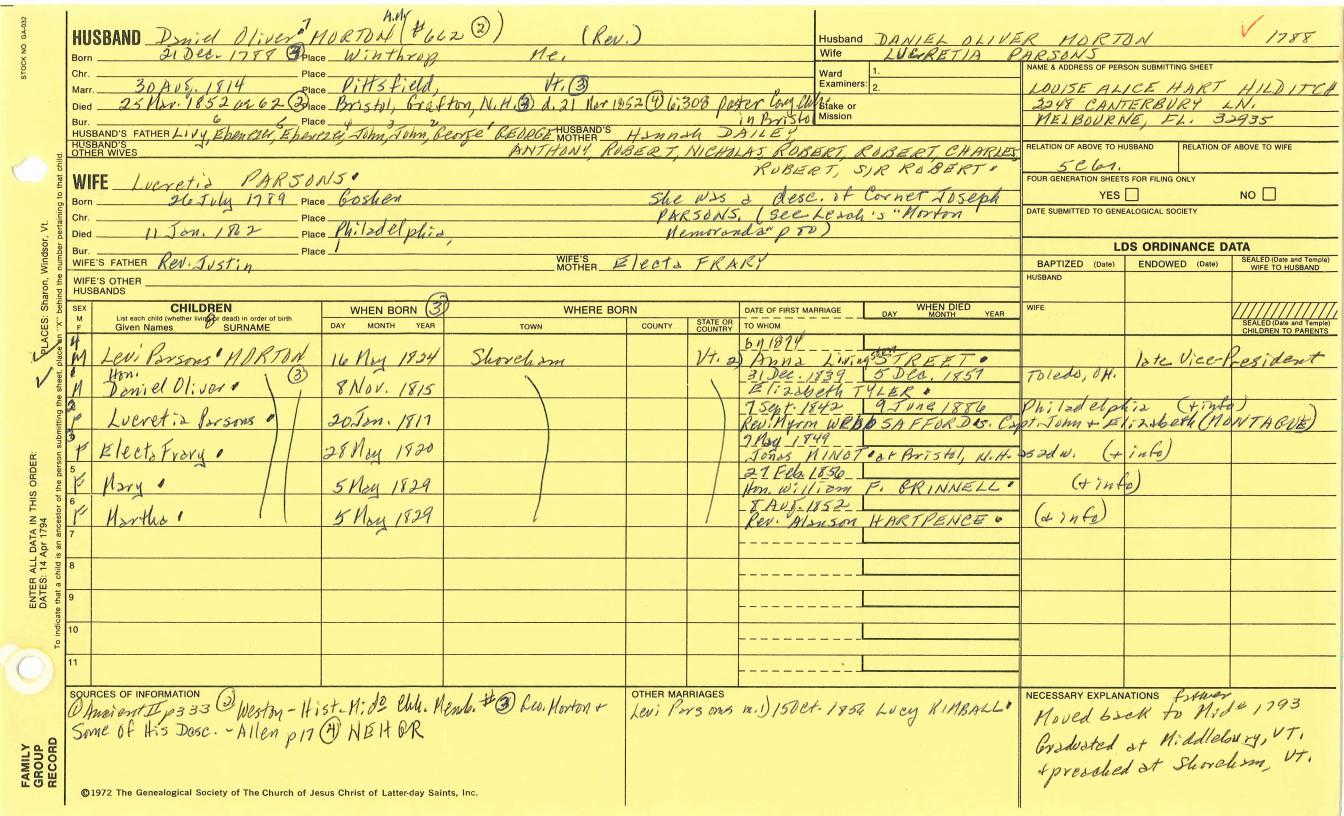 STOCK NO. GA-032
HUSBAND Daniel Oliver⁷ MORTON (#662 ②) (Rev.)
Born 21 Dec. 1788 ③ Place Winthrop Me.
Chr. Place
Marr. 30 Aug. 1814 Place Pittsfield, Vt. ③
Died 25 Mar. 1852 or 62 ③ Place Bristol, Grafton, N.H. ③ d. 21 Mar 1852 ④ 6:308 pastor Cong. Chh.
in Bristol
Bur. Place
HUSBAND'S FATHER Livy⁶, Ebenezer⁵, Ebenezer⁴, John³, John², George¹ GEORGE HUSBAND'S MOTHER Hannah DAILEY
HUSBAND'S OTHER WIVES ANTHONY, ROBERT, NICHOLAS ROBERT, ROBERT, CHARLES,
ROBERT, SIR ROBERT.
WIFE Lucretia PARSONS.
Born 26 July 1789 Place Goshen She was a desc. of Cornet Joseph
Chr. Place PARSONS. (see Leach's "Morton
Died 11 Jan. 1862 Place Philadelphia, Memoranda" p 50)
Bur. Place
WIFE'S FATHER Rev. Justin WIFE'S MOTHER Electa FRARY
WIFE'S OTHER HUSBANDS
Husband DANIEL OLIVER MORTON 1788
Wife LUCRETIA PARSONS
Ward Examiners: 1.
2.
Stake or Mission
NAME & ADDRESS OF PERSON SUBMITTING SHEET
LOUISE ALICE HART HILDITCH
2248 CANTERBURY LN.
MELBOURNE, FL. 32935
RELATION OF ABOVE TO HUSBAND RELATION OF ABOVE TO WIFE
5C6r.
FOUR GENERATION SHEETS FOR FILING ONLY
YES NO
DATE SUBMITTED TO GENEALOGICAL SOCIETY
LDS ORDINANCE DATA
BAPTIZED (Date) ENDOWED (Date) SEALED (Date and Temple) WIFE TO HUSBAND
HUSBAND
WIFE
SEALED (Date and Temple) CHILDREN TO PARENTS
SEX M F CHILDREN List each child (whether living or dead) in order of birth Given Names 8 SURNAME WHEN BORN ③ DAY MONTH YEAR WHERE BORN TOWN COUNTY STATE OR COUNTRY DATE OF FIRST MARRIAGE TO WHOM WHEN DIED DAY MONTH YEAR
4 by 1874
M Levi Parsons MORTON 16 May 1824 Shoreham Vt. 2) Anna Livingston STREET late Vice-President
1 Hon. ③ 31 Dec. 1839 5 Dec. 1859 Toledo, OH.
M Daniel Oliver 8 Nov. 1815 Elizabeth TYLER
2 7 Sept. 1842 9 June 1886 Philadelphia (+ info)
F Lucretia Parsons 20 Jan. 1817 Rev. Myron WEBB SAFFORD s. Capt. John + Elizabeth (MONTAGUE)
3 9 May 1849
F Electa Frary 28 May 1820 Jonas MINOT at Bristol, N.H. as 2d w. (+ info)
5 27 Feb. 1856
F Mary 5 May 1829 Hon. William F. GRINNELL (+ info)
6 8 Aug. 1852
F Martha 5 May 1829 Rev. Alanson HARTPENCE (+ info)
7
8
9
10
11
SOURCES OF INFORMATION
① Ancient II p 333 ② Weston - Hist. Mid° Chh. Memb. # ③ Geo. Morton +
Some of His Desc. - Allen p 17 ④ NEHGR
OTHER MARRIAGES
Levi Parsons m. 1) 15 Oct. 1856 Lucy KIMBALL
NECESSARY EXPLANATIONS father
Moved back to Mid° 1793
Graduated at Middlebury, VT.
+ preached at Shoreham, VT.
©1972 The Genealogical Society of The Church of Jesus Christ of Latter-day Saints, Inc.
FAMILY GROUP RECORD
ENTER ALL DATA IN THIS ORDER:
DATES: 14 Apr 1794
PLACES: Sharon, Windsor, Vt.
To indicate that a child is an ancestor of the person submitting the sheet, place an "X" behind the number pertaining to that child.